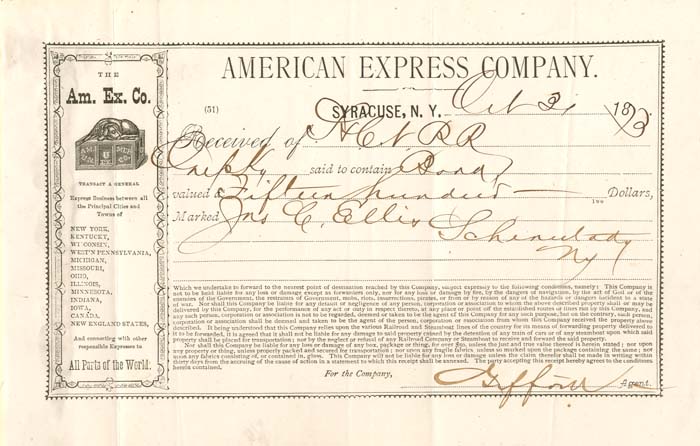 THE
Am. Ex. Co.
TRANSACT A GENERAL
Express Business between all
the Principal Cities and
Towns of
NEW YORK,
KENTUCKY,
WISCONSIN,
WEST'N PENNSYLVANIA,
MICHIGAN,
MISSOURI,
OHIO,
ILLINOIS,
MINNESOTA,
INDIANA,
IOWA,
CANADA,
NEW ENGLAND STATES,
And connecting with other
responsible Expresses to
All Parts of the World.
AMERICAN EXPRESS COMPANY.
(51) SYRACUSE, N. Y. Oct 3, 1873
Received of N.C.&RR
said to contain Bonds
valued a Fifteen hundred — Dollars,
Marked Jas C. Ellis Schenectady
Ny
Which we undertake to forward to the nearest point of destination reached by this Company, subject expressly to the following conditions, namely: This Company is
not to be held liable for any loss or damage except as forwarders only, nor for any loss or damage by fire, by the dangers of navigation, by the act of God or of the
enemies of the Government, the restraints of Government, mobs, riots, insurrections, pirates, or from or by reason of any of the hazards or dangers incident to a state
of war. Nor shall this Company be liable for any default or negligence of any person, corporation or association to whom the above described property shall or may be
delivered by this Company, for the performance of any act or duty in respect thereto, at any place or point off the established routes or lines run by this Company, and
any such person, corporation or association is not to be regarded, deemed or taken to be the agent of this Company for any such purpose, but on the contrary, such person,
corporation or association shall be deemed and taken to be the agent of the person, corporation or association from whom this Company received the property above
described. It being understood that this Company relies upon the various Railroad and Steamboat lines of the country for its means of forwarding property delivered to
it to be forwarded, it is agreed that it shall not be liable for any damage to said property caused by the detention of any train of cars or of any steamboat upon which said
property shall be placed for transportation; nor by the neglect or refusal of any Railroad Company or Steamboat to receive and forward the said property.
Nor shall this Company be liable for any loss or damage of any box, package or thing, for over $50, unless the just and true value thereof is herein stated; nor upon
any property or thing, unless properly packed and secured for transportation; nor upon any fragile fabrics, unless so marked upon the package containing the same; nor
upon any fabrics consisting of, or contained in, glass. This Company will not be liable for any loss or damage unless the claim therefor shall be made in writing within
thirty days from the accruing of the cause of action in a statement to which this receipt shall be annexed. The party accepting this receipt hereby agrees to the conditions
herein contained.
For the Company, Gifford Agent.